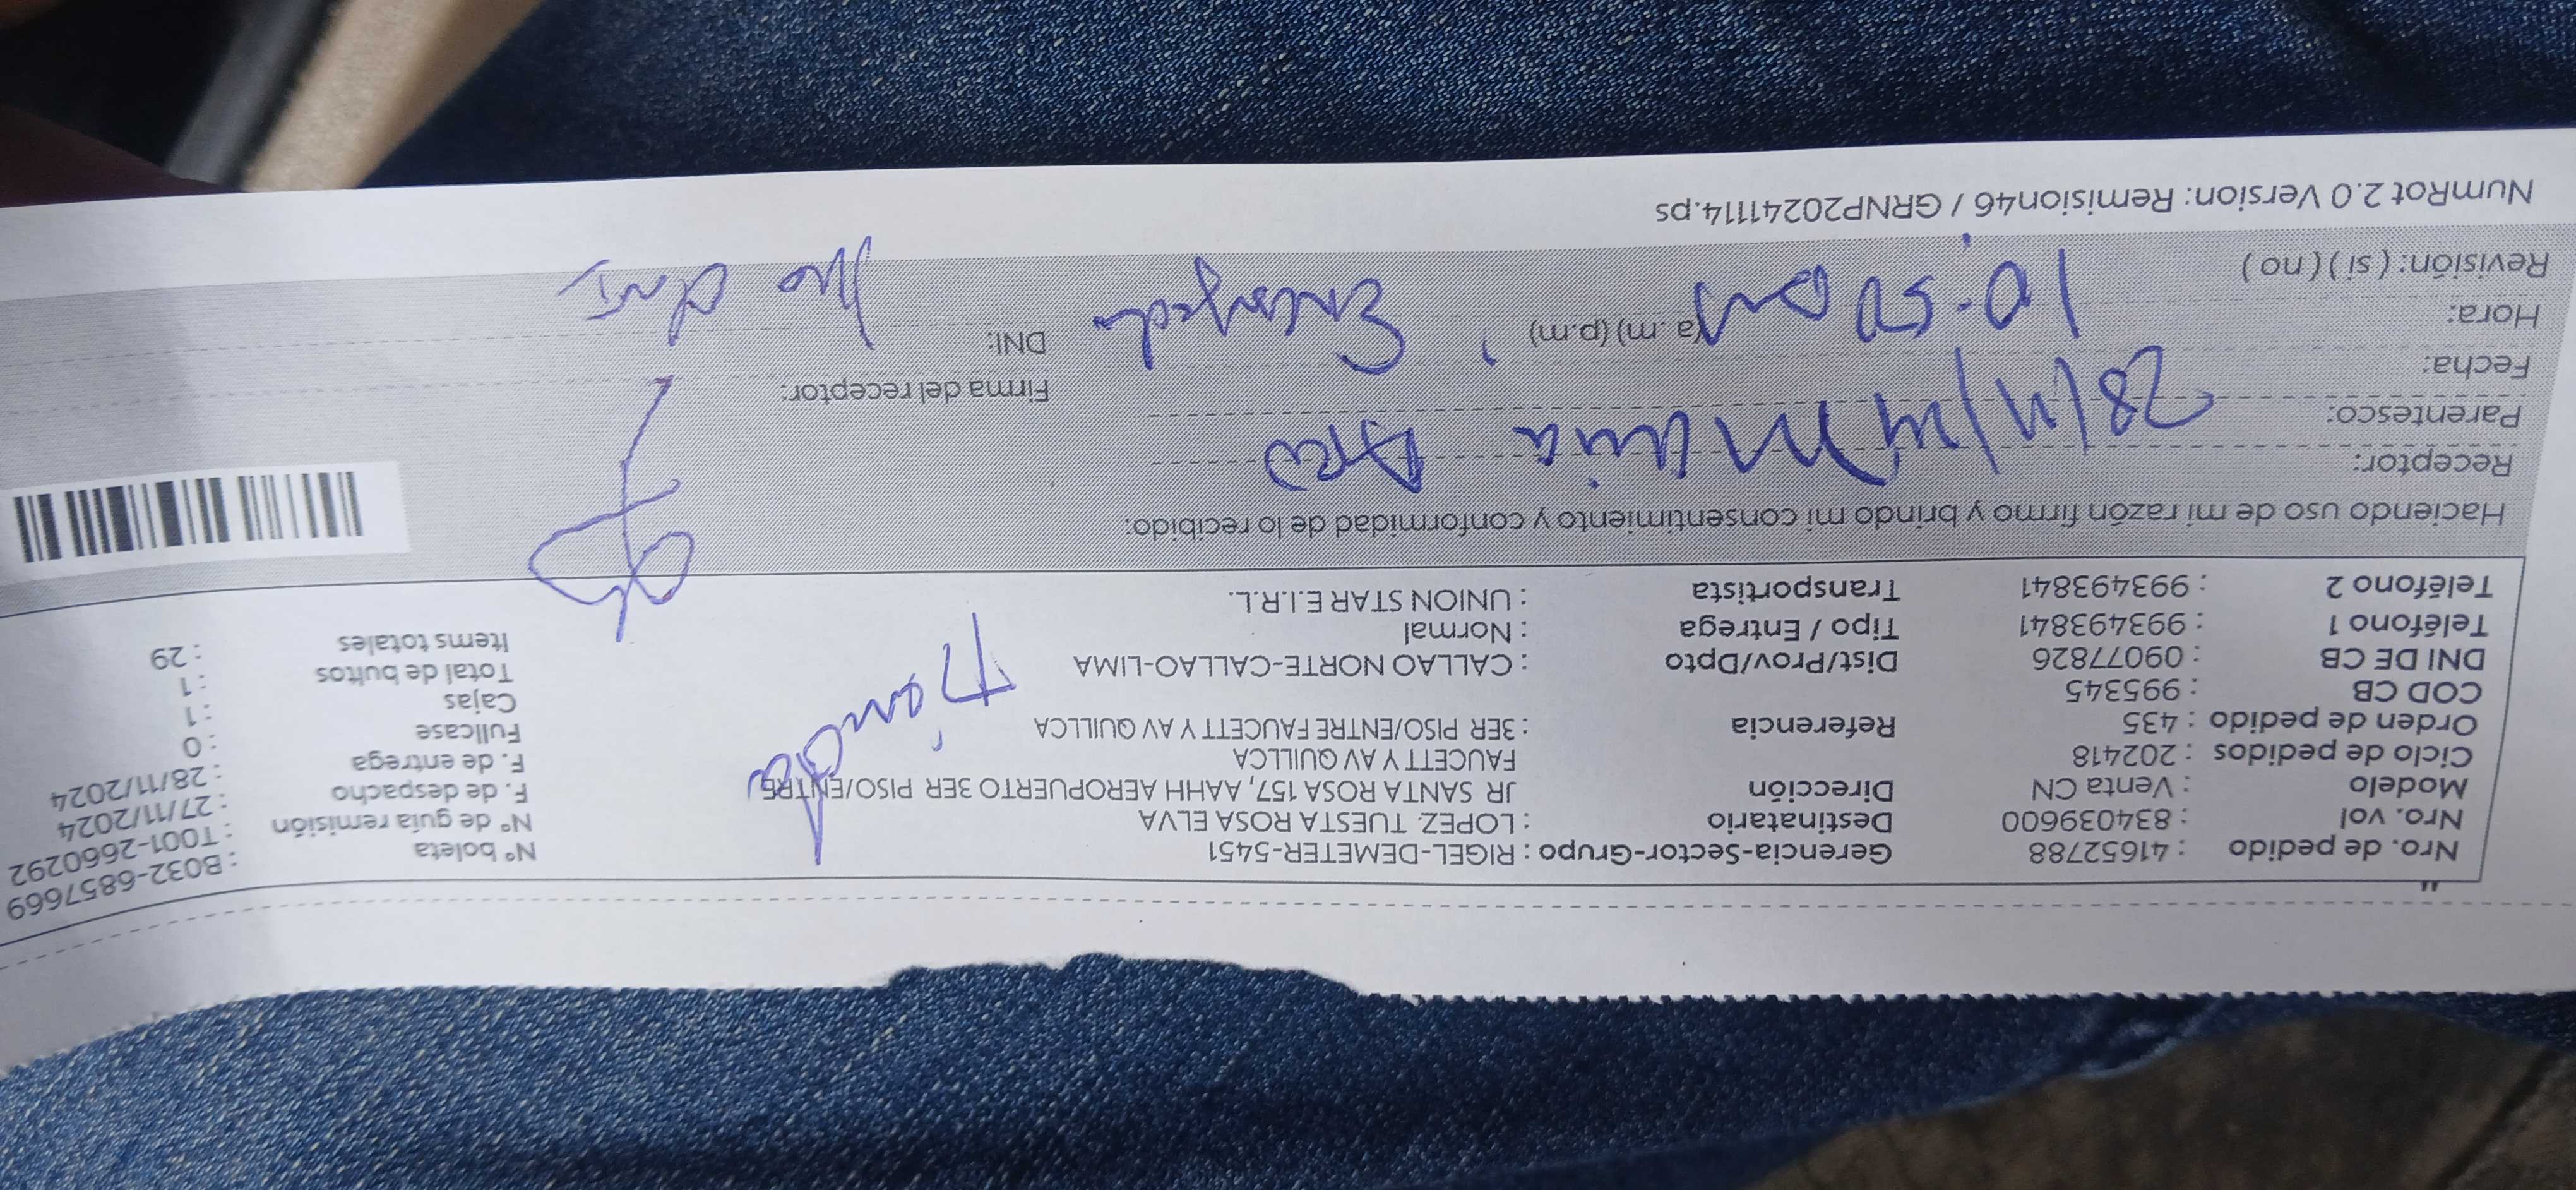 Nro. de pedido : 41652788 Gerencia-Sector-Grupo : RIGEL-DEMETER-5451 N° boleta : B032-6857669
Nro. vol : 834039600 Destinatario : LOPEZ TUESTA ROSA ELVA N° de guía remisión : T001-2660292
Modelo : Venta CN Dirección JR SANTA ROSA 157, AAHH AEROPUERTO 3ER PISO/ENTRE F. de despacho : 27/11/2024
Ciclo de pedidos : 202418 FAUCETT Y AV QUILLCA F. de entrega : 28/11/2024
Orden de pedido : 435 Referencia : 3ER PISO/ENTRE FAUCETT Y AV QUILLCA Fullcase : 0
COD CB : 995345 Cajas : 1
DNI DE CB : 09077826 Dist/Prov/Dpto : CALLAO NORTE-CALLAO-LIMA Total de bultos : 1
Teléfono 1 : 993493841 Tipo / Entrega : Normal Items totales : 29
Teléfono 2 : 993493841 Transportista : UNION STAR E.I.R.L.
Tienda
Haciendo uso de mi razón firmo y brindo mi consentimiento y conformidad de lo recibido:
Receptor: Maria
Parentesco:
Fecha: 28/11/ Firma del receptor:
Hora: 10:50 am (a.m) (p.m) Encargada DNI: No DNI
Revisión: ( si ) ( no )
NumRot 2.0 Version: Remision46 / GRNP20241114.ps